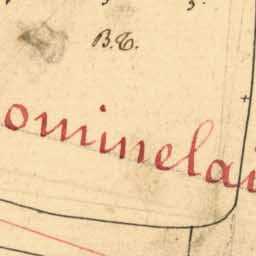 B.T.
ominelai